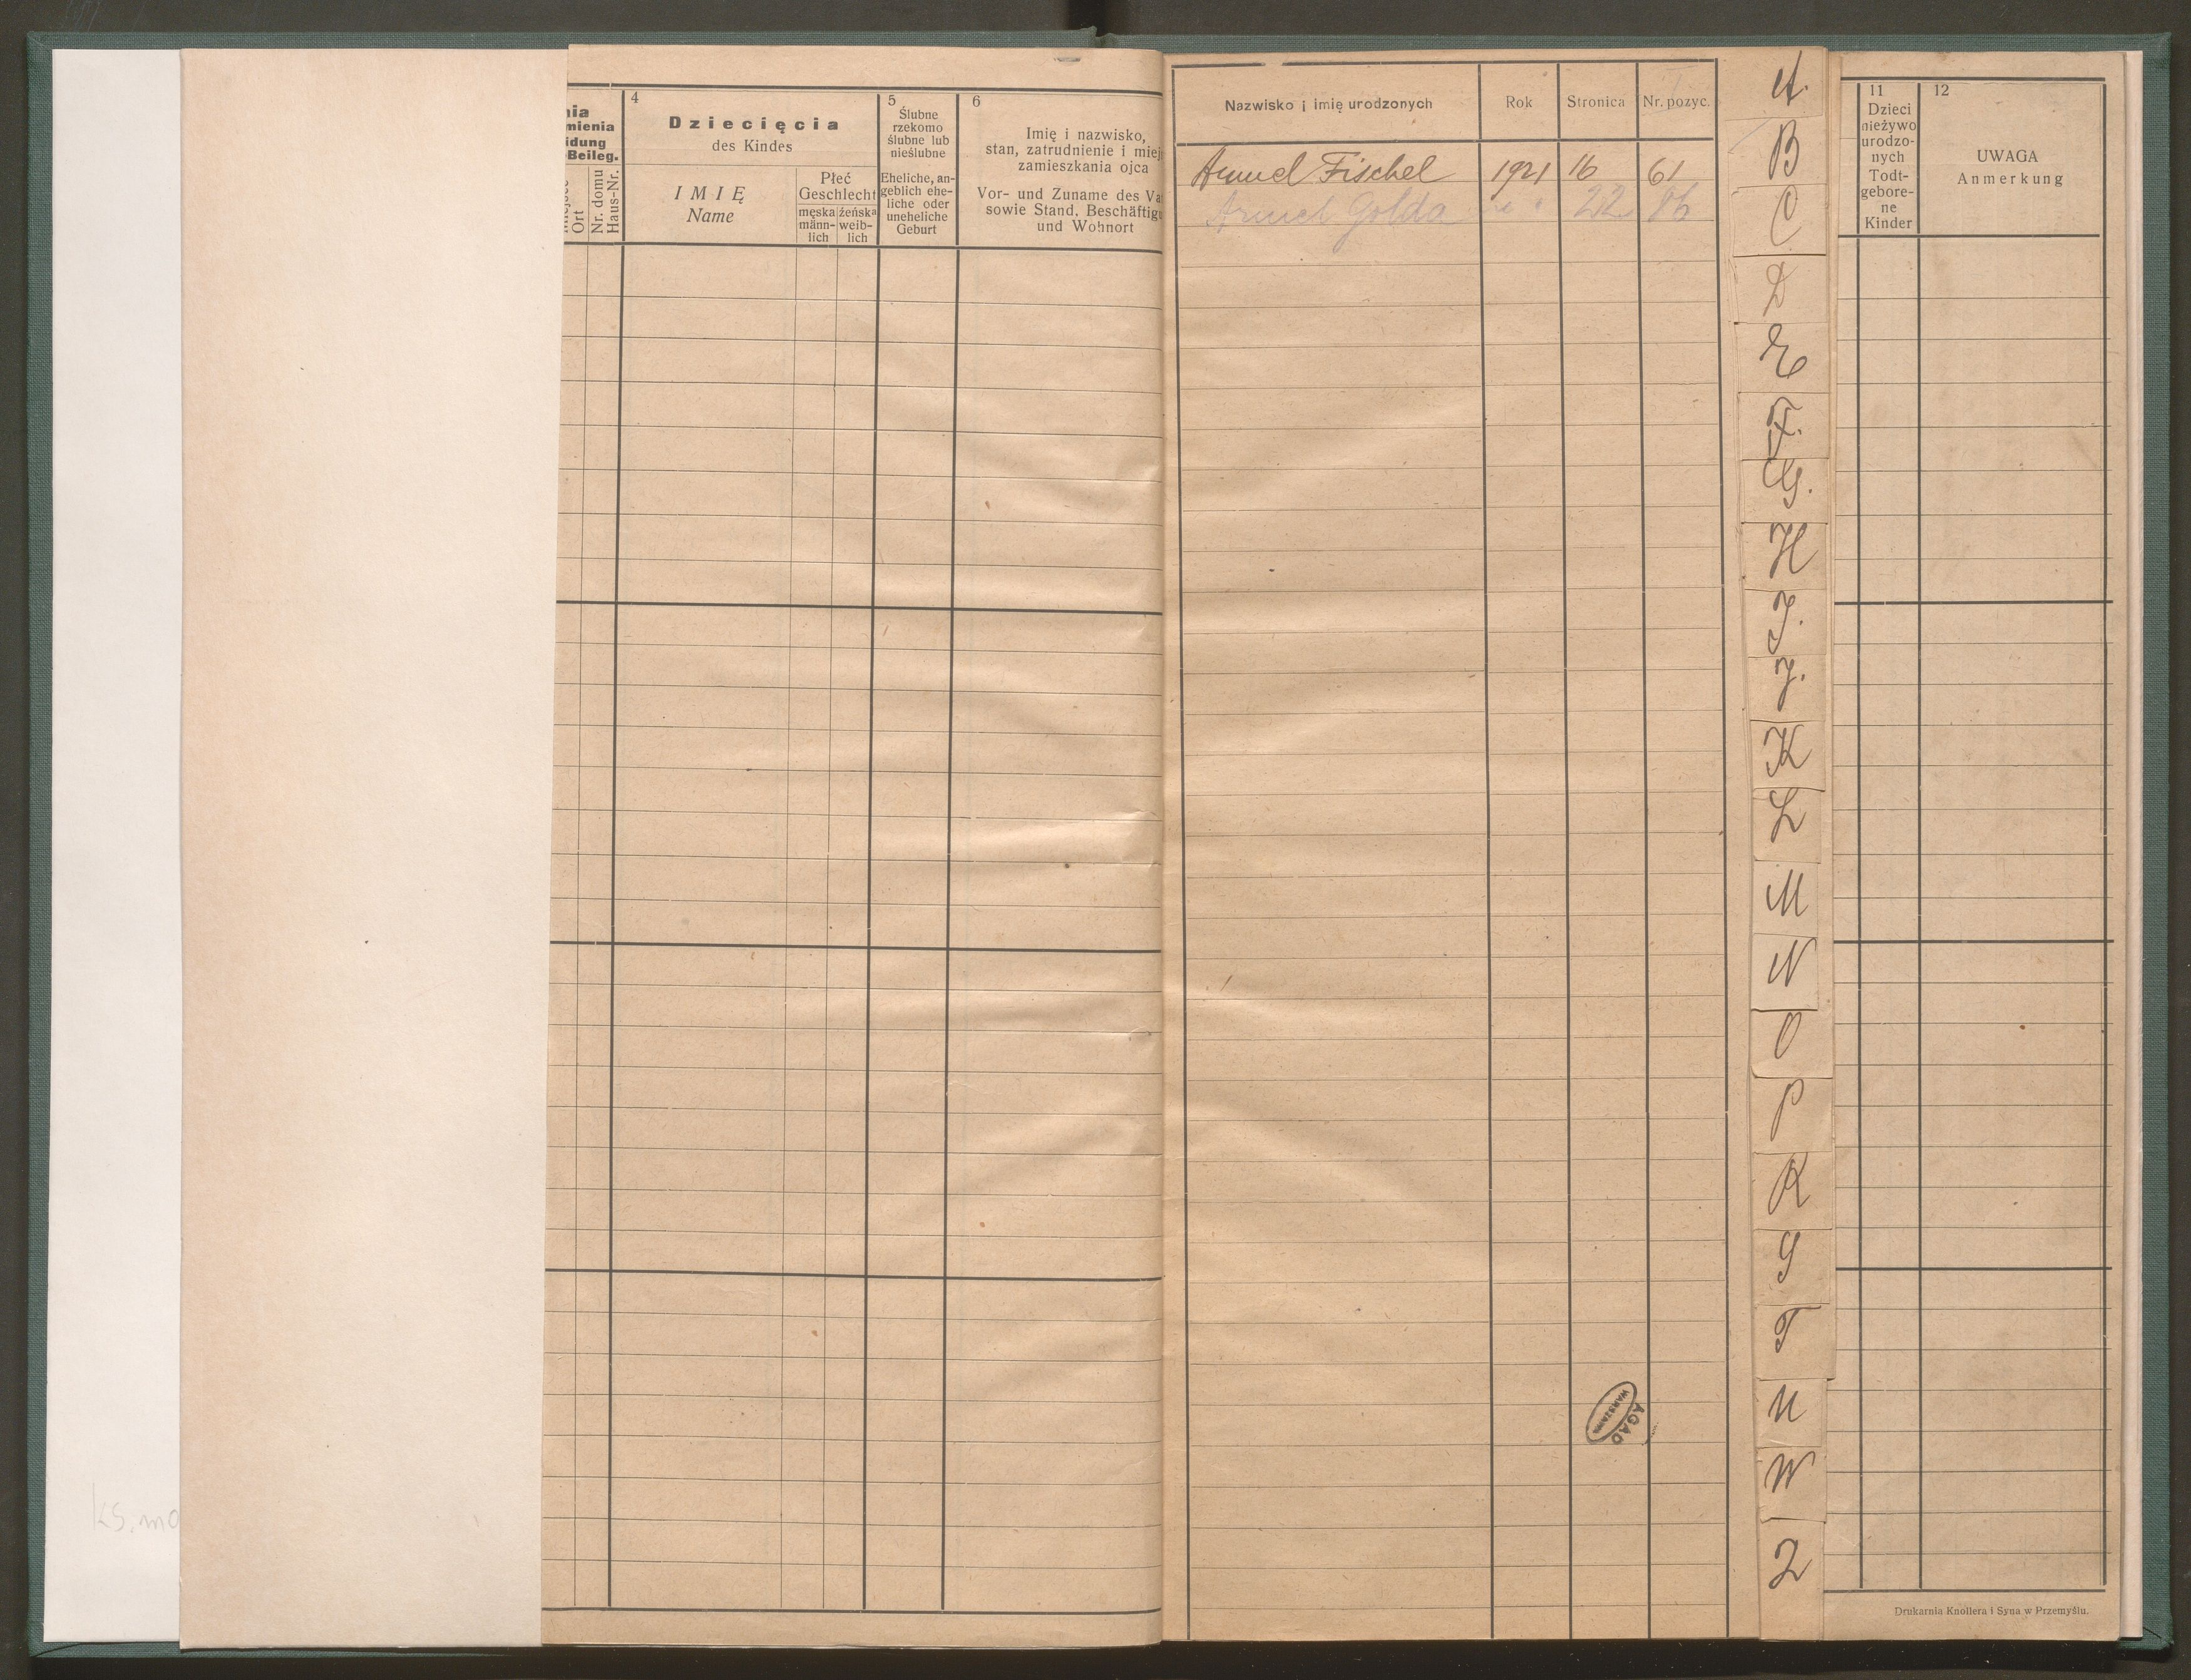 nia
mienia
idung
Beileg.
Ort
Nr. domu
Haus-Nr.
4
Dziecięcia
des Kindes
IMIĘ
Name
Płeć
Geschlecht
męska
männ-
lich
żeńska
weib-
lich
5
Ślubne
rzekomo
ślubne lub
nieślubne
Eheliche, an-
geblich ehe-
liche oder
uneheliche
Geburt
6
Imię i nazwisko,
stan, zatrudnienie i miej
zamieszkania ojca
Vor- und Zuname des Va
sowie Stand, Beschäftig
und Wohnort
Nazwisko i imię urodzonych Rok Stronica Nr. pozyc.
Fischel 1921 16 61
Golda 22 86
A.
B
C
D
E
F.
G.
H
I.
J.
K
L
M
N
O
P
R
S
T
U
W
Z
11
Dzieci
nieżywo
urodzo-
nych
Todt-
gebore-
ne
Kinder
12
UWAGA
Anmerkung
AGAD
WARSZAWA
ks. mo
Drukarnia Knollera i Syna w Przemyślu.